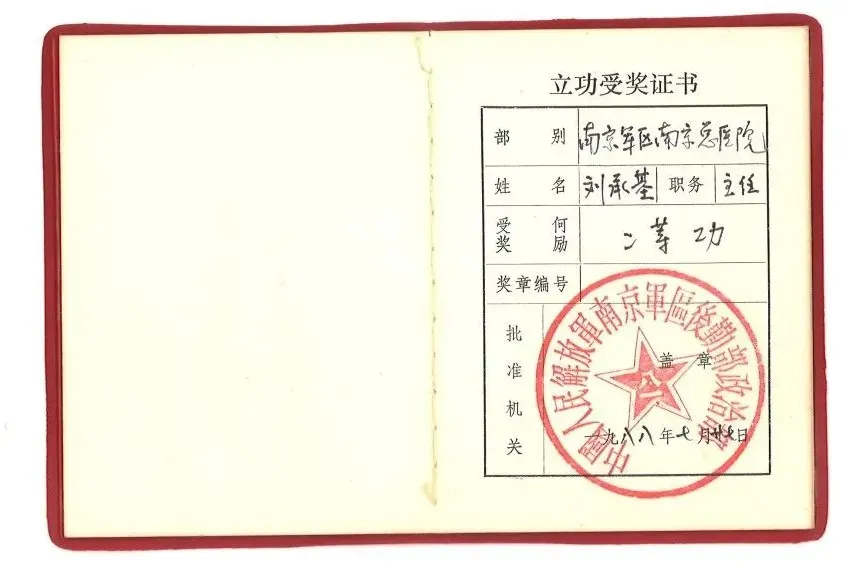 立功受奖证书
部别 南京军区南京总医院
姓名 刘承基 职务 主任
受何奖励 二等功
奖章编号
批准机关
盖章
一九八八年七月廿七日
中國人民解放軍南京軍區後勤部政治部
八一